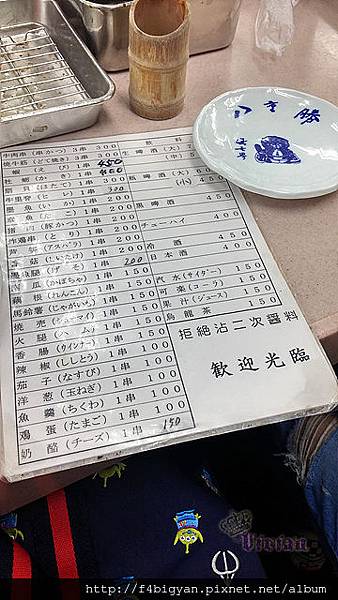 牛肉串（串かつ）3串 300
燒牛筋（どて焼き）3串 300
蝦（えび）1串 450
牡蠣（かき）1串 400
扇貝（ほたて）1串 300
墨魚（いか）1串 200
章魚（たこ）1串 200
豬肉（豚かつ）1串 200
炸鷄串（とり）1串 200
蘆筍（アスパラ）1串 200
香菇（しいたけ）1串 200
墨魚腿（げそ）1串 150
南瓜（かぼちゃ）1串 150
藕根（れんこん）1串 150
馬鈴薯（じゃがいも）1串 150
燒売（シュウマイ）1串 150
火腿（ハム）1串 150
香腸（ウインナー）1串 150
辣椒（ししとう）1串 100
茄子（なすび）1串 100
洋葱（玉ねぎ）1串 100
魚羹（ちくわ）1串 100
鶏蛋（たまご）1串 100
奶酪（チーズ）1串 150
飲料
生啤酒（大）
（中）
瓶啤酒（大）
（小）450
黒啤酒 450
チューハイ
400
冷酒 450
日本酒 400
汽水（サイダー）150
可楽（コーラ）150
果汁（ジュース）150
烏龍茶 150
拒絶沾二次醤料
歓迎光臨
八重勝
Vivian
http://f4bigyan.pixnet.net/album